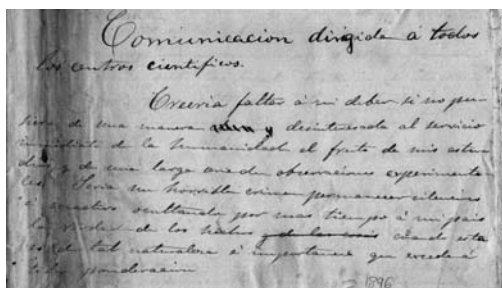 Comunicacion dirigida á todos
los centros científicos.
Creeria faltar á mi deber si no pu-
siera de una manera y desinteresada al servicio
inmediato de la humanidad el fruto de mis estu-
dios y de una larga serie de observaciones experimenta-
les. Seria un horrible crimen permanecer silencioso
é inactivo ocultando por mas tiempo á mi pais
la verdad de los hechos cuando esta
es de tal naturaleza é importancia que excede á
toda ponderacion
1896